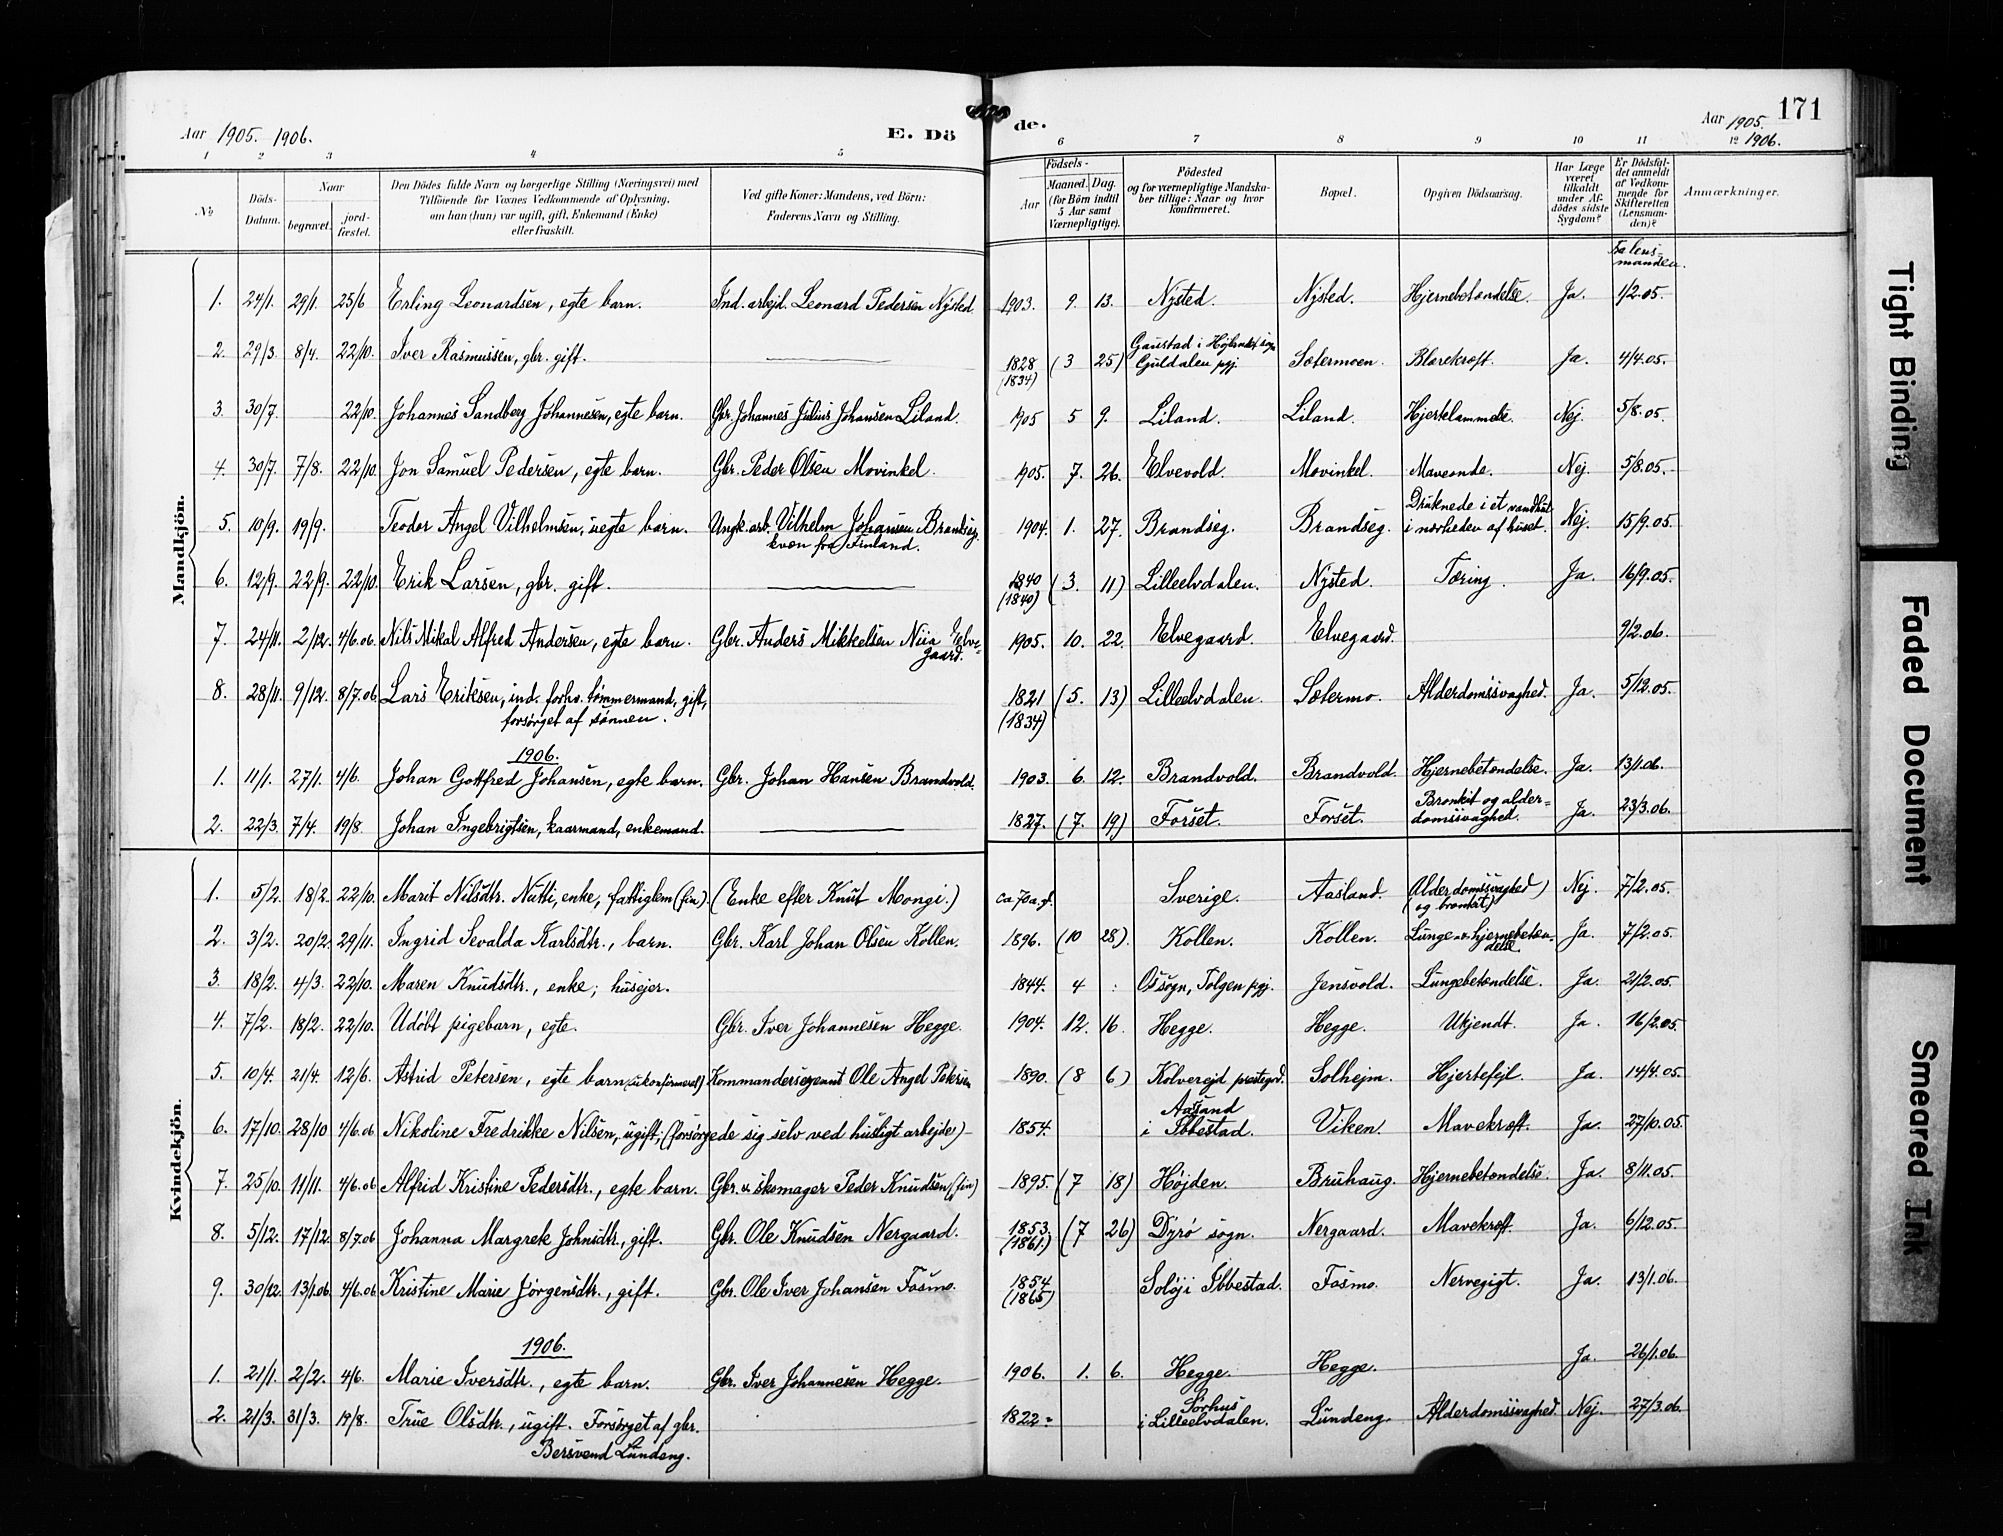 Aar 1905. 1906. E. Dö de. Aar 1905. 1906. 171
1 2 3 4 5 6 7 8 9 10 11 12
No Döds-Datum. Naar begravet. jord-fæstet. Den Dödes fulde Navn og borgerlige Stilling (Næringsvei) med Tilföiende for Voxnes Vedkommende af Oplysning, om han (hun) var ugift, gift, Enkemand (Enke) eller fraskilt. Ved gifte Koner: Mandens, ved Börn: Faderens Navn og Stilling. Födsels- Aar Maaned. Dag. (for Börn indtil 5 Aar samt Værnepligtige). Födested og for værnepligtige Mandskaber tillige: Naar og hvor konfirmeret. Bopæl. Opgiven Dödsaarsag. Har Læge været tilkaldt under Afdödes sidste Sygdom? Er Dödsfaldet anmeldt af Vedkommende for Skifteretten (Lensmanden)? Anmærkninger.
Fra lens-
manden.
Mandkjön.
1. 24/1. 29/1. 25/6 Erling Leonardsen, egte barn. Ind. arbejd. Leonard Pedersen Nysted. 1903. 9. 13. Nysted. Nysted. Hjernebetændelse. Ja. 1/2.05.
2. 29/3. 8/4. 22/10. Iver Rasmussen, gbr. gift. 1828 (1834) (3 25) Gaustad i sogn Guldalen pgj. Sætermoen. Blærekræft. Ja. 4/4.05.
3. 30/7. 22/10. Johannes Sandberg Johannesen, egte barn. Gbr. Johannes Julius Johansen Liland. 1905 5 9. Liland. Liland. Hjertelammelse. Nej. 5/8.05.
4. 30/7. 7/8. 22/10. Jon Samuel Pedersen, egte barn. Gbr. Peder Olsen Movinkel. 1905. 7. 26. Elvevold. Movinkel. Maveonde. Nej. 5/8.05.
5. 10/9. 19/9. Teodor Angel Vilhelmsen, uegte barn. Ungk. arb. Vilhelm Johansen Brandseg, kvæn fra Finland. 1904. 1. 27. Brandseg. Brandseg. Druknede i et vandhul i nærheden af huset. Nej. 15/9.05.
6. 12/9. 22/9. 22/10. Erik Larsen, gbr. gift. 1840 (1840) (3. 11) Lilleelvdalen. Nysted. Tæring. Ja. 16/9.05.
7. 24/11. 2/12. 4/6.06 Nils Mikal Alfred Andersen, egte barn. Gbr. Anders Mikkelsen Niia Elvegaard. 1905. 10. 22. Elvegaard. Elvegaard. 9/2.06.
8. 28/11. 9/12. 8/7.06 Lars Eriksen, ind. forhv. tømmermand, gift, forsørget af sønnen. 1821 (1834) (5. 13) Lilleelvdalen. Sætermo. Alderdomssvaghed. Ja. 5/12.05.
1906.
1. 11/1. 27/1. 4/6. Johan Gottfred Johansen, egte barn. Gbr. Johan Hansen Brandvold. 1903. 6. 12. Brandvold. Brandvold. Hjernebetændelse. Ja. 13/1.06.
2. 22/3. 7/4. 19/8. Johan Ingebrigtsen, kaarmand, enkemand. 1827. (7. 19) Forset. Forset. Bronkit og alderdomssvaghed. Ja. 23/3.06.
Kvindekjön.
1. 5/2. 18/2. 22/10. Marit Nilsdtr. Nutti, enke, fattiglem (fin). (Enke efter Knut Mongi.) ca 70 a. gl. Sverige. Aasland. Alderdomssvaghed (og bronkit) Nej. 7/2.05.
2. 3/2. 20/2. 29/11. Ingrid Sevalda Karlsdtr., barn. Gbr. Karl Johan Olsen Kollen. 1896. (10 28). Kollen. Kollen. Lunge- & hjernebetændelse. Ja. 7/2.05.
3. 18/2. 4/3. 22/10. Maren Knudsdtr., enke; husejer. 1844. 4 : Os sogn, Tolgen pgj. Jensvold. Lungebetændelse. Ja. 21/2.05.
4. 7/2. 18/2. 22/10. Udöbt pigebarn, egte. Gbr. Iver Johannesen Hegge. 1904. 12. 16. Hegge. Hegge. Ukjendt. Ja. 16/2.05.
5. 10/4. 21/4. 12/6. Astrid Petersen, egte barn (ukonfirmeret) Kommandersergeant Ole Angel Petersen 1890. (8 6) Kolverejd prestegd. Solhejm. Hjertefejl. Ja. 14/4.05
6. 17/10. 28/10 4/6.06 Nikoline Fredrikke Nilsen, ugift; (forsørgede sig selv ved husligt arbejde) 1854. Aasand i Ibbestad. Viken. Mavekræft. Ja. 27/10.05.
7. 25/10. 11/11. 4/6.06 Alfrid Kristine Pedersdtr., egte barn. Gbr. & skomager Peder Knudsen (fin) 1895. (7 18) Højden. Bruhaug. Hjernebetændelse. Ja. 8/11.05.
8. 5/12. 17/12. 8/7.06 Johanna Margrete Johnsdtr., gift. Gbr. Ole Knudsen Nergaard. 1853. (1861.) (7 26) Dyrø sogn. Nergaard. Mavekræft. Ja. 6/12.05.
9. 30/12. 13/1.06. 4/6.06 Kristine Marie Jörgensdtr., gift. Gbr. Ole Iver Johansen Fosmo. 1854. (1865) Soløj i Ibbestad. Fosmo. Nervegigt. Ja. 13/1.06.
1906.
1. 21/1. 2/2. 4/6. Marie Iversdtr., egte barn. Gbr. Iver Johannesen Hegge. 1906. 1. 6. Hegge. Hegge. Ja. 26/1.06.
2. 21/3. 31/3. 19/8. True Olsdtr., ugift. Forsørget af gbr. Bersvend Lundeng. 1822. Sørhus i Lilleelvdalen. Lundeng. Alderdomssvaghed. Nej. 27/3.06.
Tight Binding
Faded Document
Smeared Ink